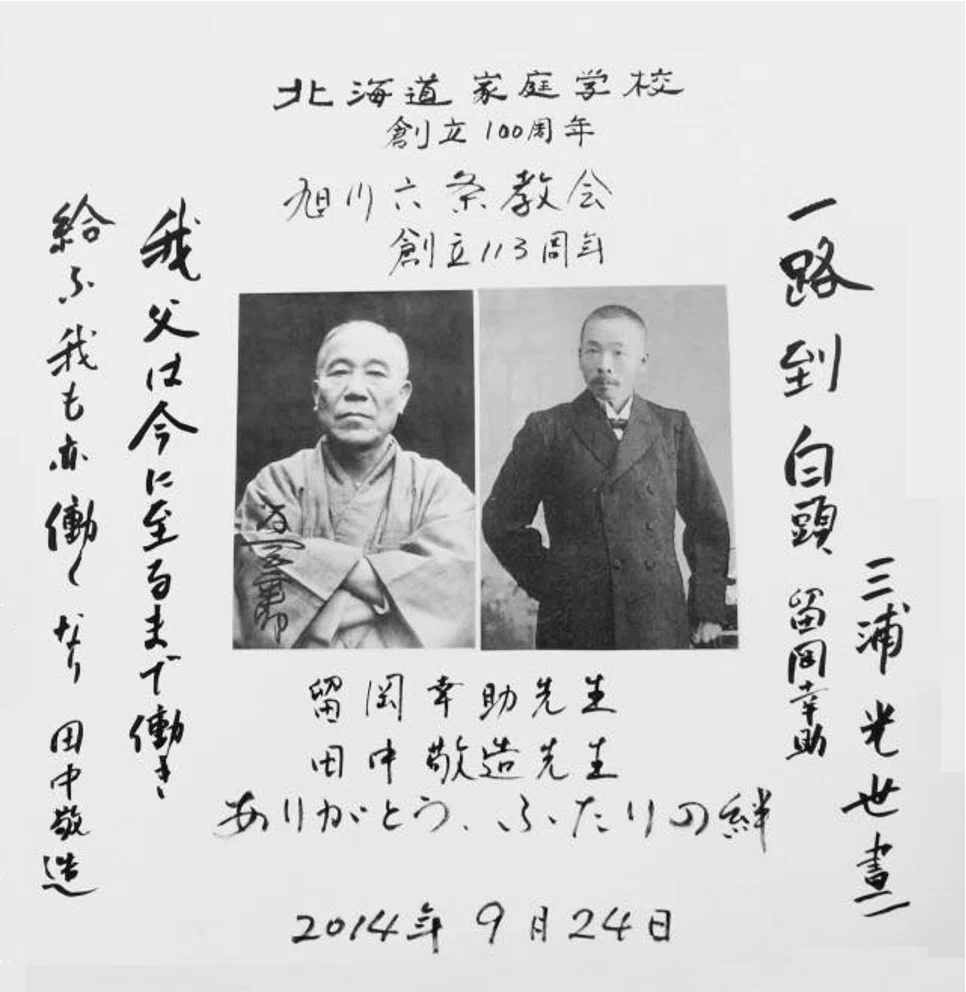 北海道家庭学校
創立100周年
旭川六条教会
創立113周年
一路到白頭 留岡幸助
三浦光世書
我父は今に至るまで働き
給ふ我も亦働くなり 田中敬造
留岡幸助先生
田中敬造先生
ありがとう、ふたりの絆
2014年9月24日